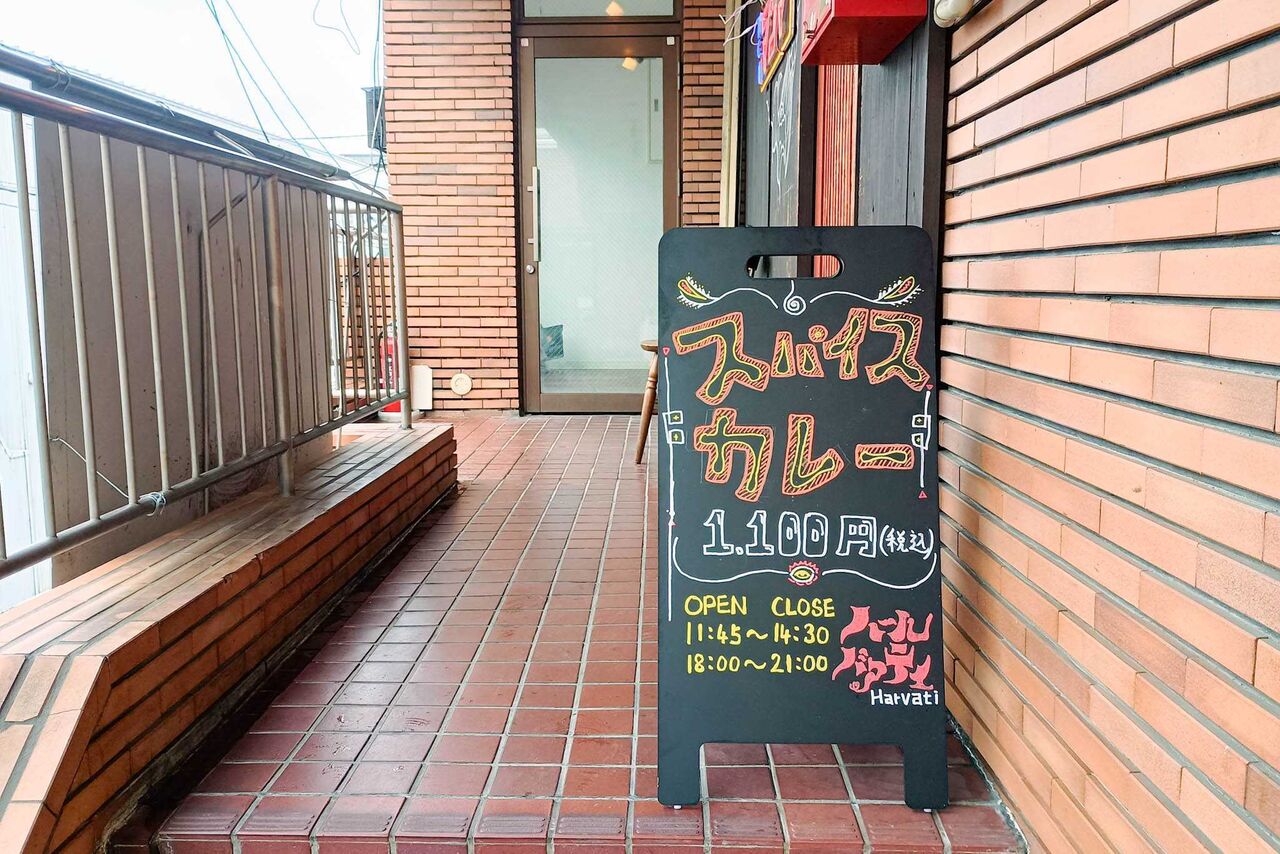 スパイス
カレー
1.100円(税込)
OPEN CLOSE
11:45～14:30
18:00～21:00
ハールバァティ
Harvati